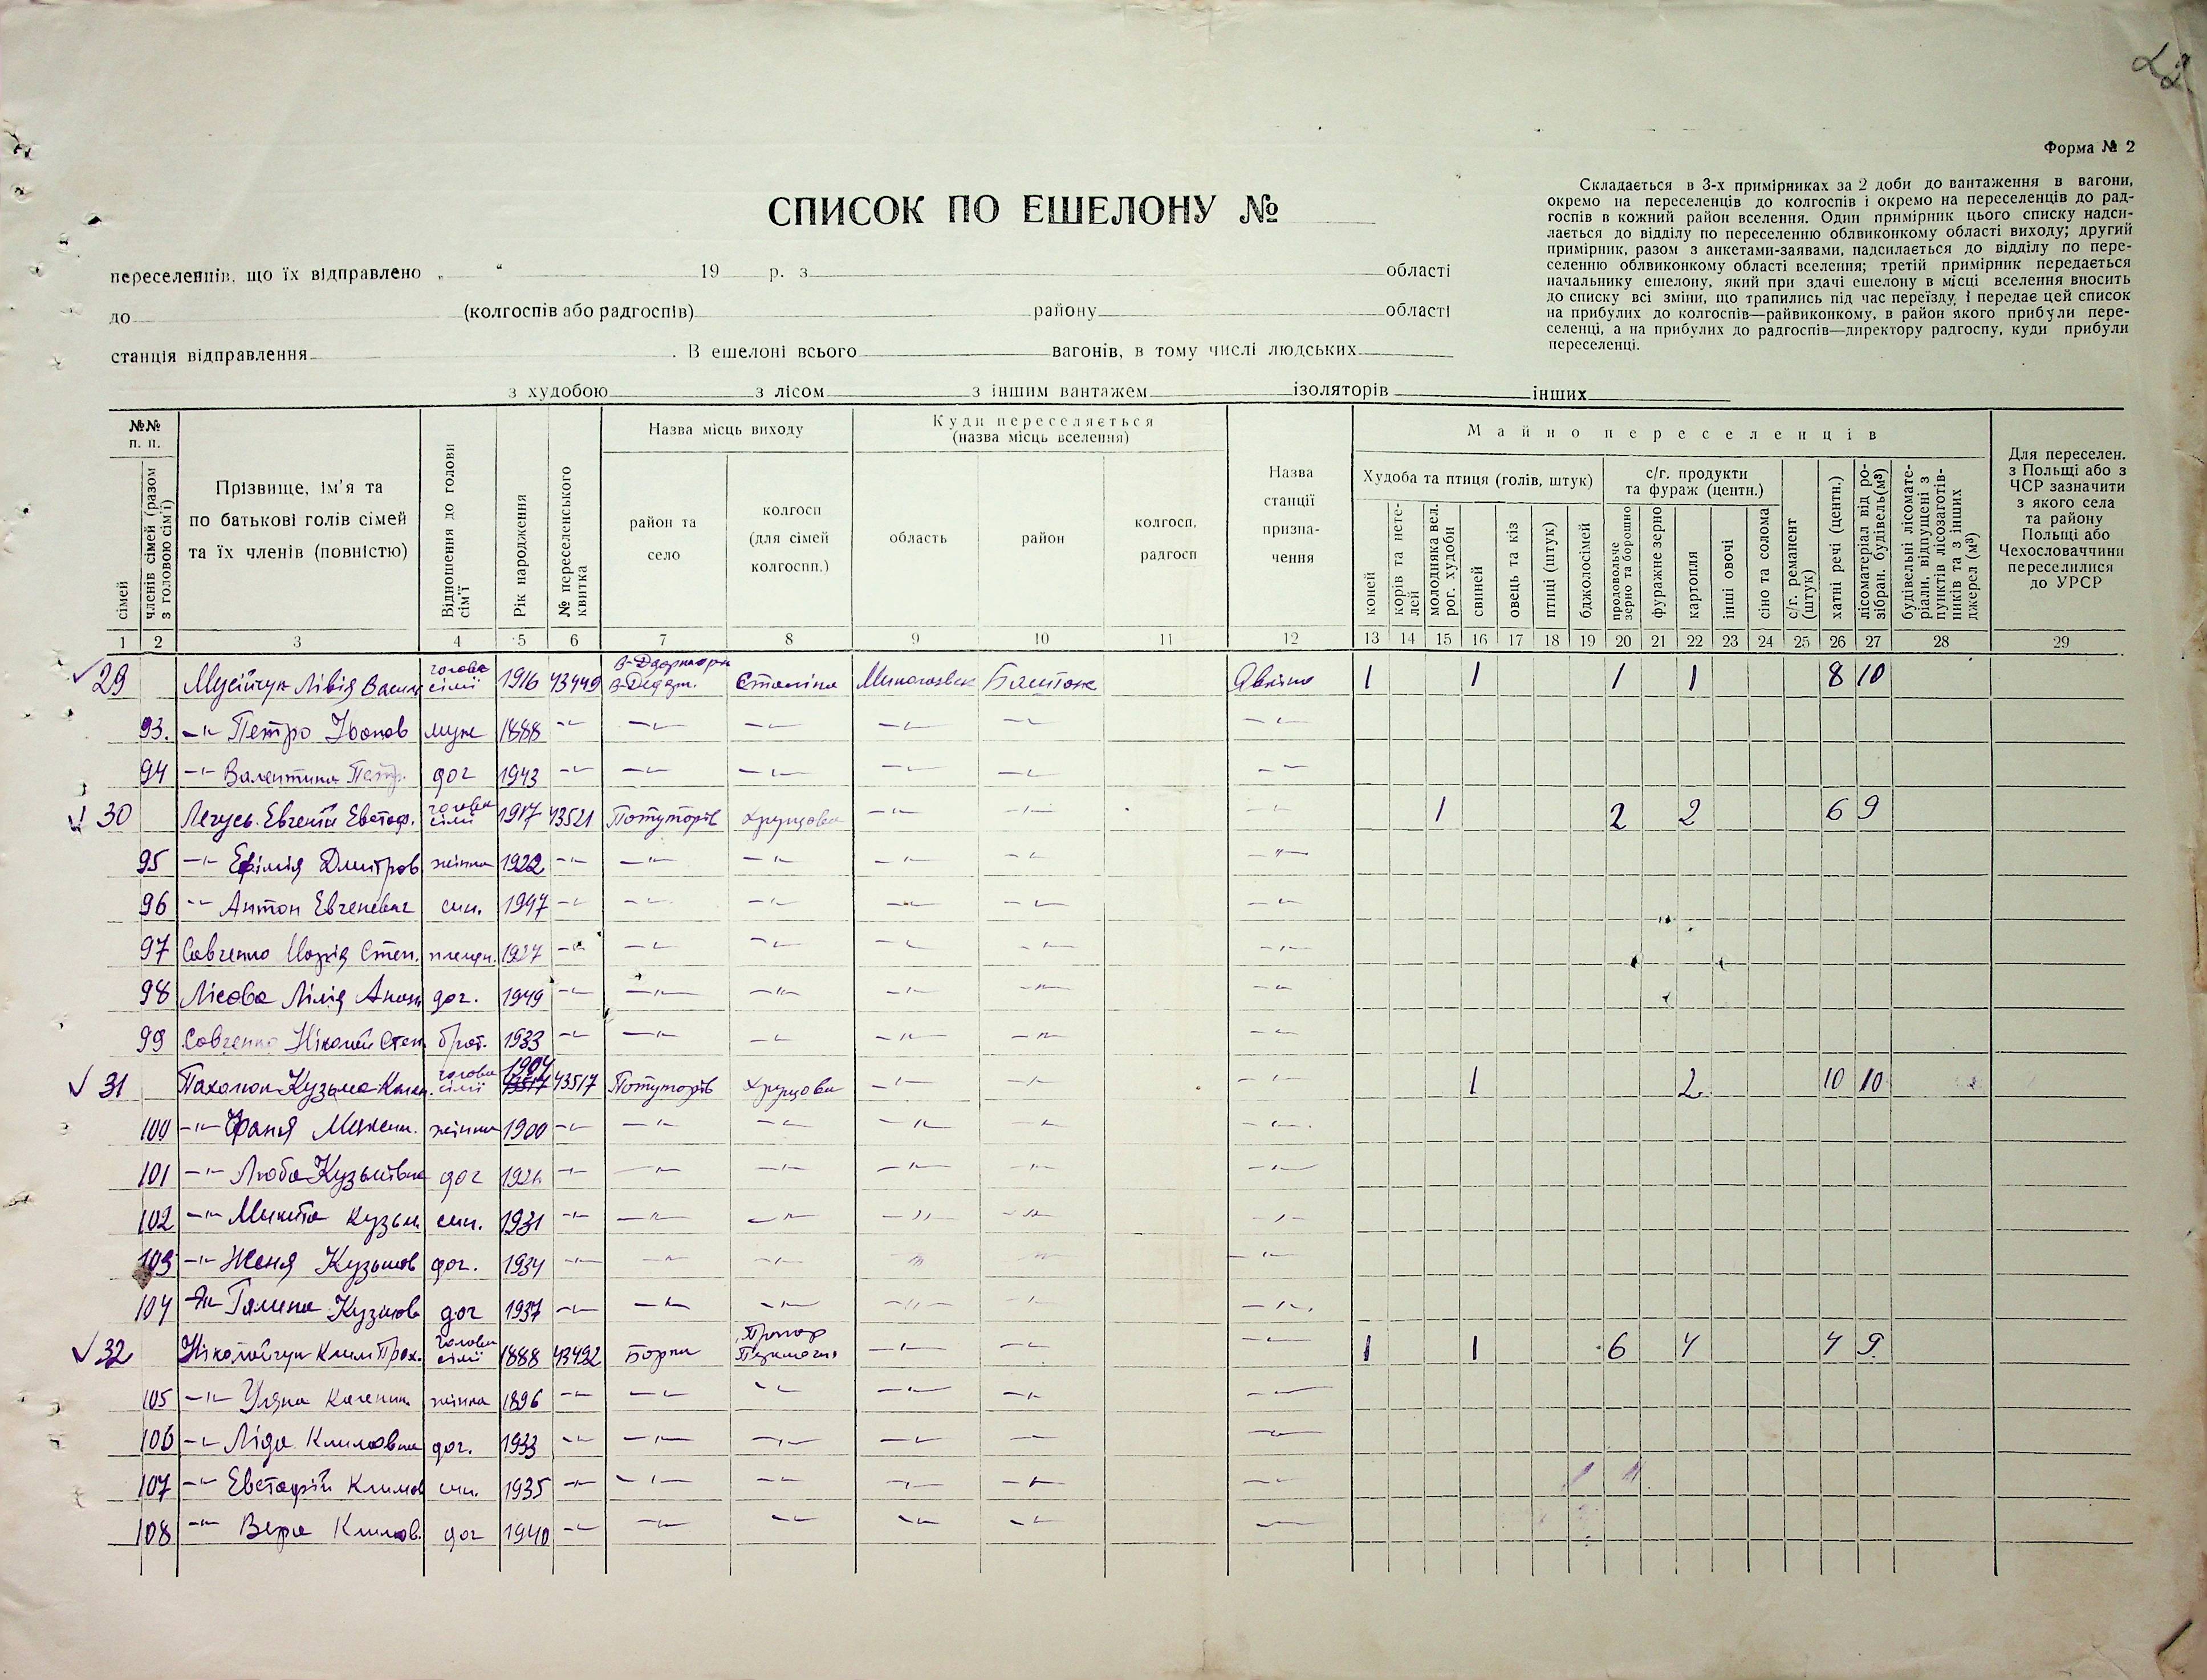 22
Форма № 2
СПИСОК ПО ЕШЕЛОНУ №
Складається в 3-х примірниках за 2 доби до вантаження в вагони,
окремо на переселенців до колгоспів і окремо на переселенців до рад-
госпів в кожний район вселення. Один примірник цього списку надси-
лається до відділу по переселенню облвиконкому області виходу; другий
примірник, разом з анкетами-заявами, надсилається до відділу по пере-
селенню облвиконкому області вселення; третій примірник передається
начальнику ешелону, який при здачі ешелону в місці вселення вносить
до списку всі зміни, що трапились під час переїзду, і передає цей список
на прибулих до колгоспів—райвиконкому, в район якого прибули пере-
селенці, а на прибулих до радгоспів—директору радгоспу, куди прибули
переселенці.
переселенців, що їх відправлено „ “ 19 р. з області
до (колгоспів або радгоспів) району області
станція відправлення . В ешелоні всього вагонів, в тому числі людських
з худобою з лісом з іншим вантажем ізоляторів інших
№№ п. п.
сімей
членів сімей (разом з головою сім'ї)
Прізвище, ім'я та
по батькові голів сімей
та їх членів (повністю)
Відношення до голови сім'ї
Рік народження
№ переселенського квитка
Назва місць виходу
район та село
колгосп (для сімей колгоспн.)
Куди переселяється
(назва місць вселення)
область
район
колгосп, радгосп
Назва станції призна- чення
Майно переселенців
Худоба та птиця (голів, штук)
коней
корів та нете- лей
молодняка вел. рог. худоби
свиней
овець та кіз
птиці (штук)
бджолосімей
с/г. продукти
та фураж (центн.)
продовольче зерно та борошно
фуражне зерно
картопля
інші овочі
сіно та солома
с/г. реманент (штук)
хатні речі (центн.)
лісоматеріал від ро- зібран. будівель (м³)
будівельні лісомате- ріали, відпущені з пунктів лісозаготів- ників та з інших джерел (м³)
Для переселен.
з Польщі або з
ЧСР зазначити
з якого села
та району
Польщі або
Чехословаччини
переселилися
до УРСР
1 2 3 4 5 6 7 8 9 10 11 12 13 14 15 16 17 18 19 20 21 22 23 24 25 26 27 28 29
29 Мусійчук Лівія Васил голова сімї 1916 43449 Сталіна Миколаївск Баштанс Явкіно 1 1 1 1 8 10
93. -"- Петро Іванов муж 1888 -"- -"- -"- -"- -"- -"-
94 -"- Валентина Петр. доч 1943 -"- -"- -"- -"- -"- -"-
30 Легусь Евгеній Евстаф. голова сімї 1917 43521 Потуторів Хрущова -"- -"- -"- 1 2 2 6 9
95 -"- Ефімія Дмитров жінка 1922 -"- -"- -"- -"- -"- -"-
96 -"- Антон Евгеневич син. 1947 -"- -"- -"- -"- -"- -"-
97 Савченко Марія Степ. племен. 1927 -"- -"- -"- -"- -"- -"-
98 Лісова Лілія доч. 1949 -"- -"- -"- -"- -"- -"-
99 Савченко Ніколай Степ брат. 1933 -"- -"- -"- -"- -"- -"-
31 Пахолюк Кузьма голова сімї 1904 43517 Потуторів Хрущова -"- -"- -"- 1 2 10 10
100 -"- Фаня Максим. жінка 1900 -"- -"- -"- -"- -"- -"-
101 -"- Люба Кузьмівна доч -"- -"- -"- -"- -"- -"-
102 -"- Микита Кузьм син. 1931 -"- -"- -"- -"- -"- -"-
103 -"- Женя Кузьмов доч. 1934 -"- -"- -"- -"- -"- -"-
104 -"- Галина Кузмов доч 1937 -"- -"- -"- -"- -"- -"-
32 Ніколайчук Клим Прох. голова сімї 1888 43492 Борки -"- -"- -"- 1 1 6 4 4 9
105 -"- Уляна жінка 1896 -"- -"- -"- -"- -"- -"-
106 -"- Ліда Климовна доч. 1933 -"- -"- -"- -"- -"- -"-
107 -"- Евстафій Климов син. 1935 -"- -"- -"- -"- -"- -"-
108 -"- Вера Климов. доч 1940 -"- -"- -"- -"- -"- -"-